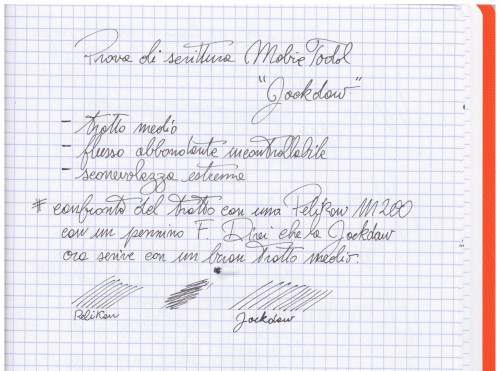 Prova di scrittura Mabie Todd
"Jackdaw"
- tratto medio
- flusso abbondante incontrollabile
- scorrevolezza estrema
# confronto del tratto con una Pelikan M200
con un pennino F. Direi che la Jackdaw
ora scrive con un buon tratto medio.
Pelikan
Jackdaw